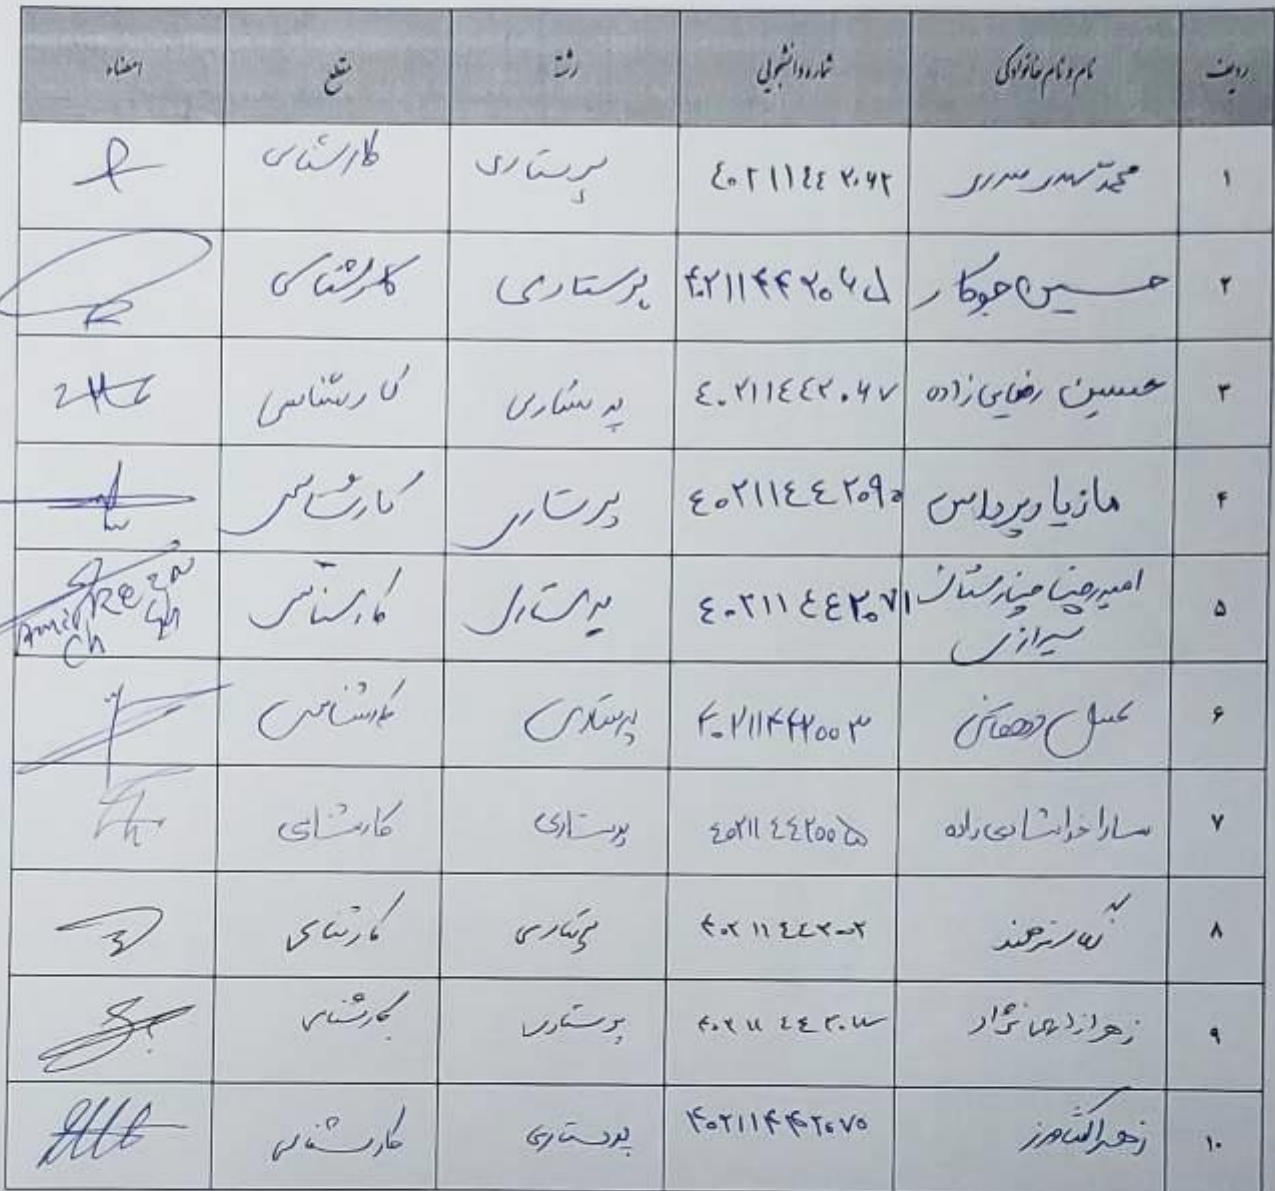 ردیف نام و نام خانوادگی شماره دانشجویی رشته مقطع امضاء
۱ محمد ۴۰۲۱۱۴۴۲۰۶۲ پرستاری کارشناسی
۲ حسین جوکار ۴۰۲۱۱۴۴۲۰۶۵ پرستاری کارشناسی
۳ حسین رضایی زاده ۴۰۲۱۱۴۴۲۰۶۷ پرستاری کارشناسی
۴ مازیار ویرداس ۴۰۲۱۱۴۴۲۰۹۰ پرستاری کارشناسی
۵ امیررضا ۴۰۲۱۱۴۴۲۰۷۱ پرستاری کارشناسی Amir Reza
شیرازی Ch
۶ عسل دهقانی ۴۰۲۱۱۴۴۲۰۰۳ پرستاری کارشناسی
۷ سارا زاده ۴۰۲۱۱۴۴۲۰۰۵ پرستاری کارشناسی
۸ ۴۰۲۱۱۴۴۲۰۰۲ پرستاری کارشناسی
۹ زهرا نژاد پرستاری کارشناسی
۱۰ زهرا کشاورز ۴۰۲۱۱۴۴۲۰۷۵ پرستاری کارشناسی